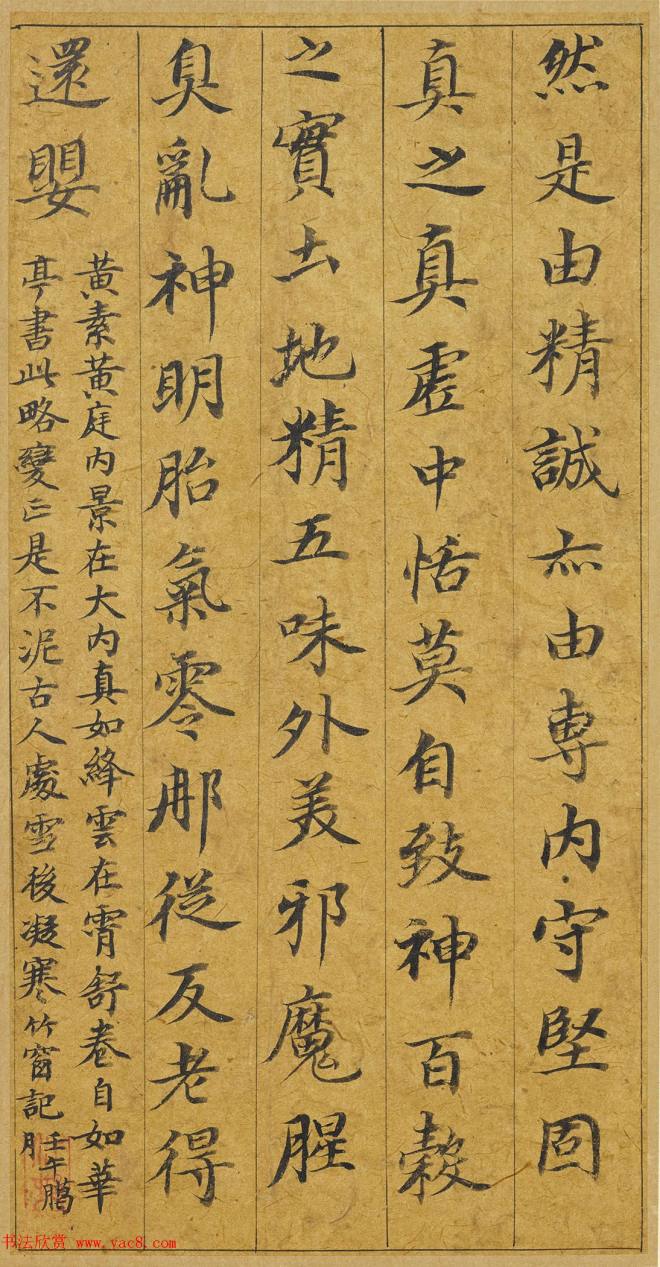 然是由精誠亦由專內守堅固
真之真虛中恬莫自致神百穀
之實土地精五味外美邪魔腥
臭亂神明胎氣零那從反老得
還嬰
黃素黃庭内景在大内真如絳雲在霄舒卷自如華
亭書此略變正是不泥古人處雪後凝寒竹窗記
壬午腊
月
书法欣赏 www.yac8.com